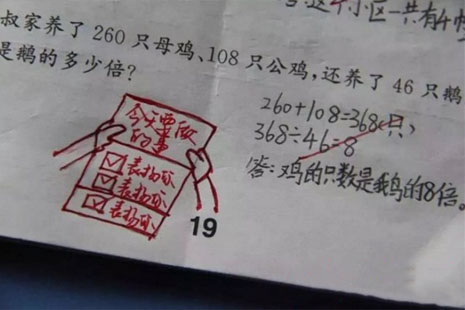 这个小区一共有4幢
叔家养了 260 只母鸡、108 只公鸡，还养了 46 只鹅
是鹅的多少倍？
260+108=368(只)
368÷46=8
答:鸡的只数是鹅的8倍。
今天要做
的事
表扬你
表扬你
表扬你
19